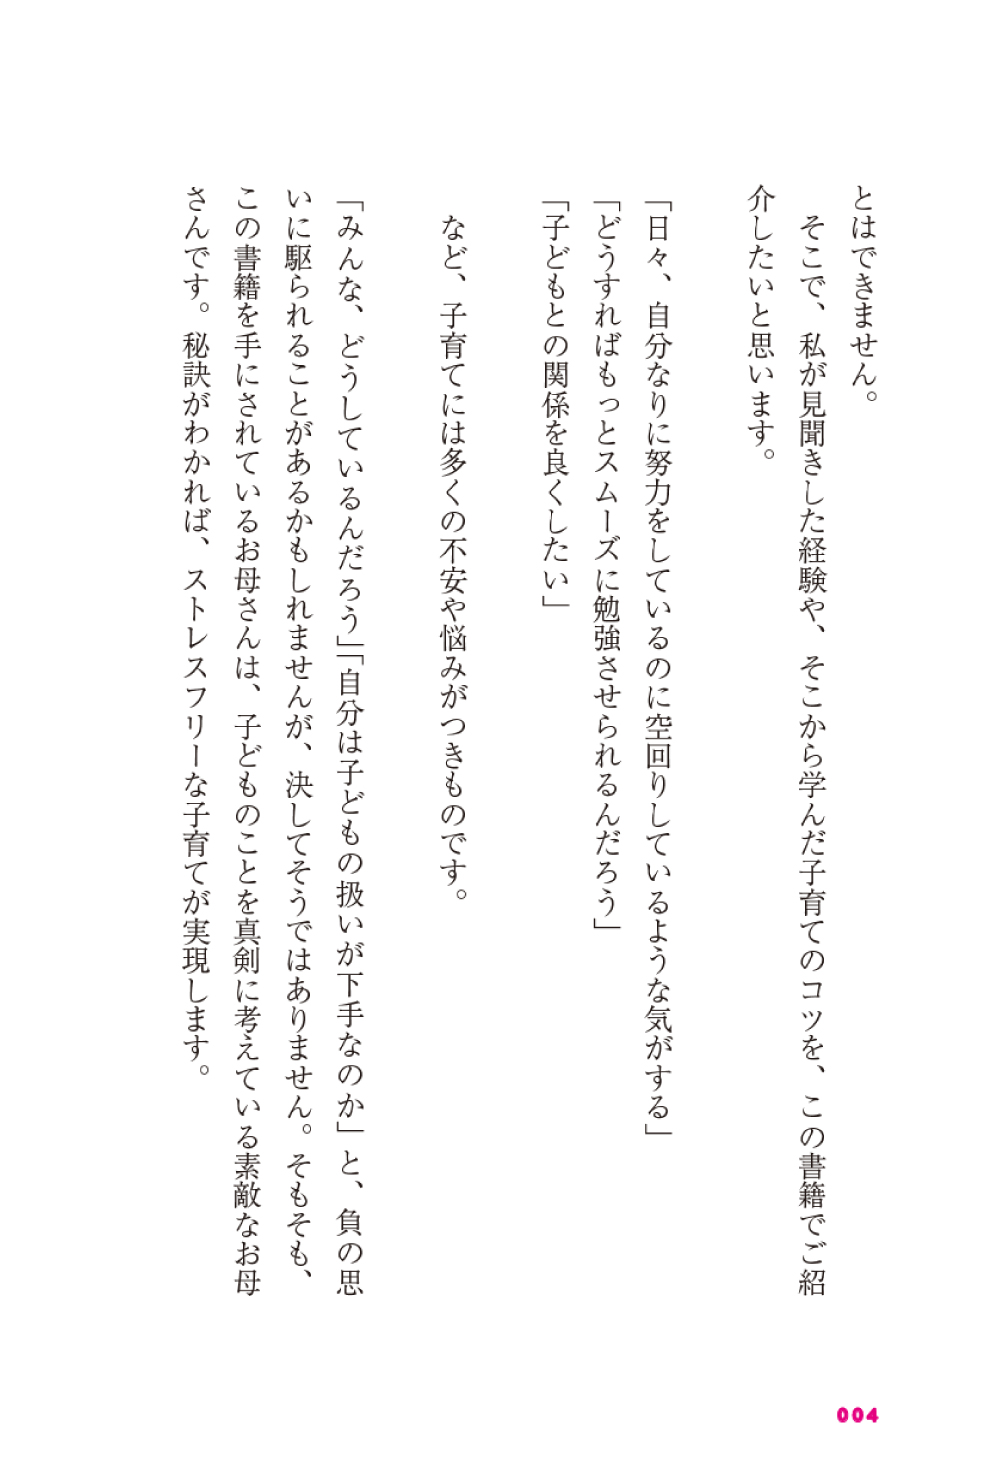 とはできません。
　そこで、私が見聞きした経験や、そこから学んだ子育てのコツを、この書籍でご紹
介したいと思います。
「日々、自分なりに努力をしているのに空回りしているような気がする」
「どうすればもっとスムーズに勉強させられるんだろう」
「子どもとの関係を良くしたい」
　など、子育てには多くの不安や悩みがつきものです。
「みんな、どうしているんだろう」「自分は子どもの扱いが下手なのか」と、負の思
いに駆られることがあるかもしれませんが、決してそうではありません。そもそも、
この書籍を手にされているお母さんは、子どものことを真剣に考えている素敵なお母
さんです。秘訣がわかれば、ストレスフリーな子育てが実現します。
004